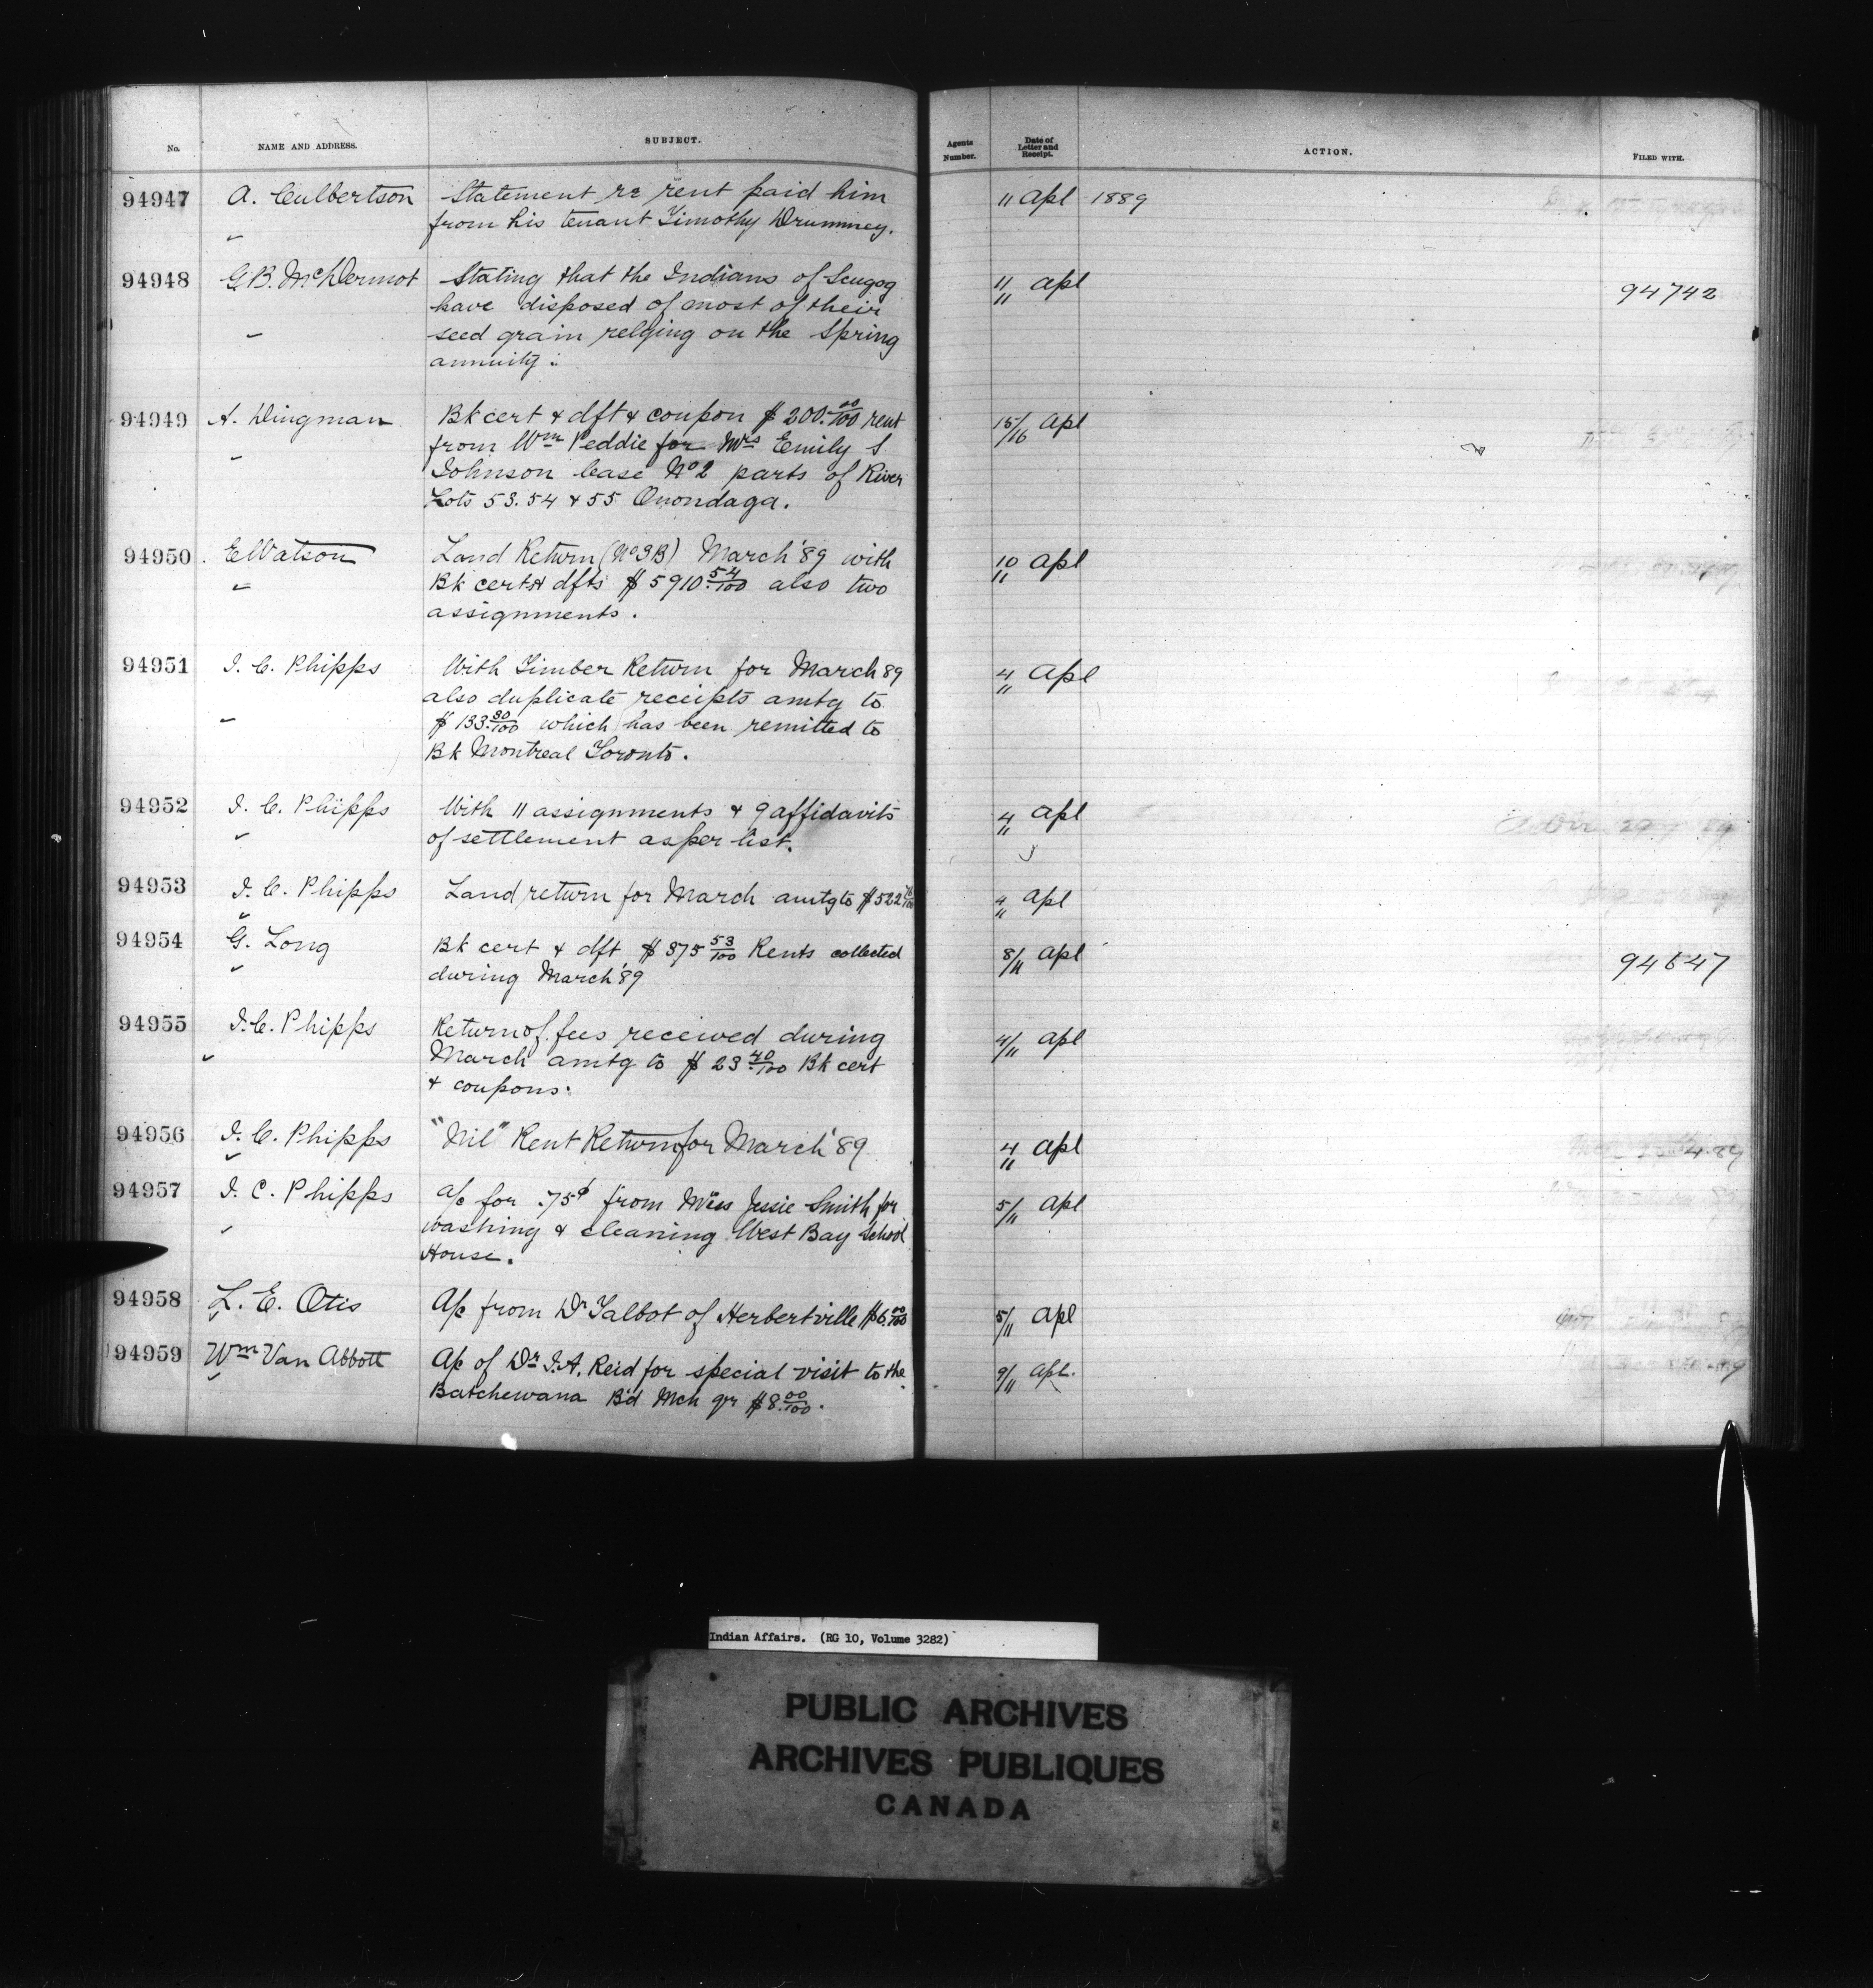 No. NAME AND ADDRESS. SUBJECT. Agents Number. Date of Letter and Receipt. ACTION. FILED WITH.
94947 A. Culbertson Statement re rent paid him 11 Apl 1889
from his tenant Timothy Drummey.
94948 G.B. McDermot Stating that the Indians of Scugog 11/11 Apl 94742
have disposed of most of their
seed grain relying on the Spring
annuity.
94949 A. Dingman Bk cert & dft & coupon $200.00/100 rent 15/16 Apl
from Wm Peddie for Mrs Emily S
Johnson lease No 2 parts of River
Lots 53.54 & 55 Onondaga.
94950 E Watson Land Return (No 3B) March '89 with 10/11 Apl
Bk certs & dfts $5910.54/100 also two
assignments.
94951 J. C. Phipps With Timber Return for March 89 4/11 Apl
also duplicate receipts amtg to
$133.80/100 which has been remitted to
Bk Montreal Toronto.
94952 J. C. Phipps With 11 assignments & 9 affidavits 4/11 Apl
of settlement as per list.
94953 J. C. Phipps Land return for March amtg to $522 4/11 Apl
94954 G. Long Bk cert & dft $375 53/100 Rents collected 8/11 Apl 94647
during March '89
94955 J. C. Phipps Return of fees received during 4/11 Apl
March amtg to $23 40/100 Bk cert
& coupons.
94956 J. C. Phipps "Nil" Rent Return for March '89 4/11 Apl
94957 J. C. Phipps a/c for .75¢ from Miss Jessie Smith for 5/11 Apl
washing & cleaning West Bay School
House.
94958 L. E. Otis A/c from Dr Talbot of Herbertville $6.00/100 5/11 Apl
94959 Wm Van Abbott A/c of Dr J. A. Reid for special visit to the 9/11 Apl.
Batchewana Bd Mch qr $8.00/100.
Indian Affairs. (RG 10, Volume 3282)
PUBLIC ARCHIVES
ARCHIVES PUBLIQUES
CANADA